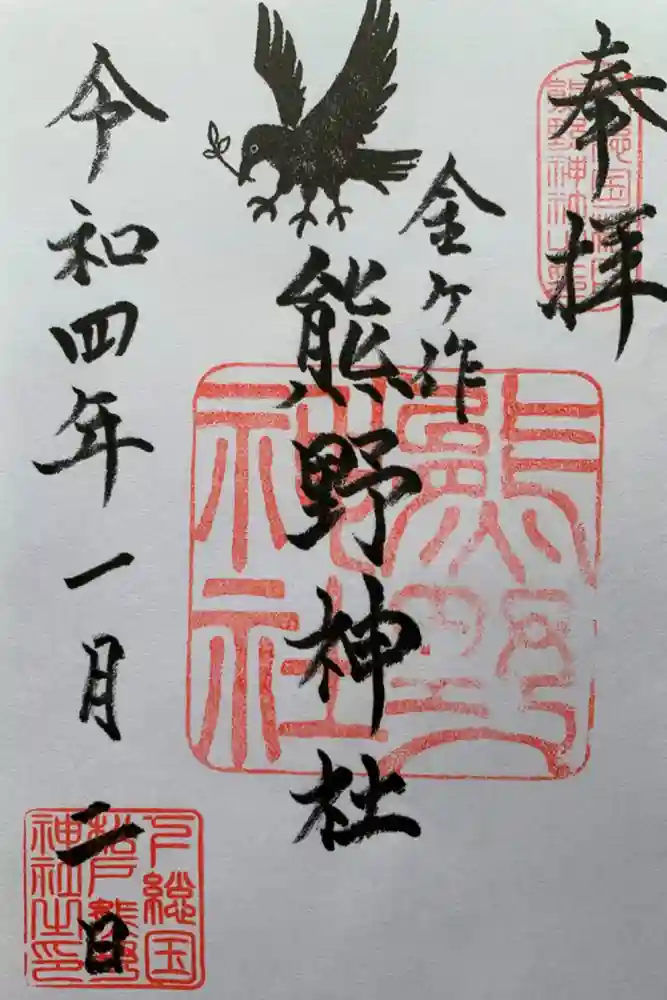 奉拝
金ケ作
熊野神社
令和四年一月二日
熊野
神社
下総国
松戸熊野
神社之印